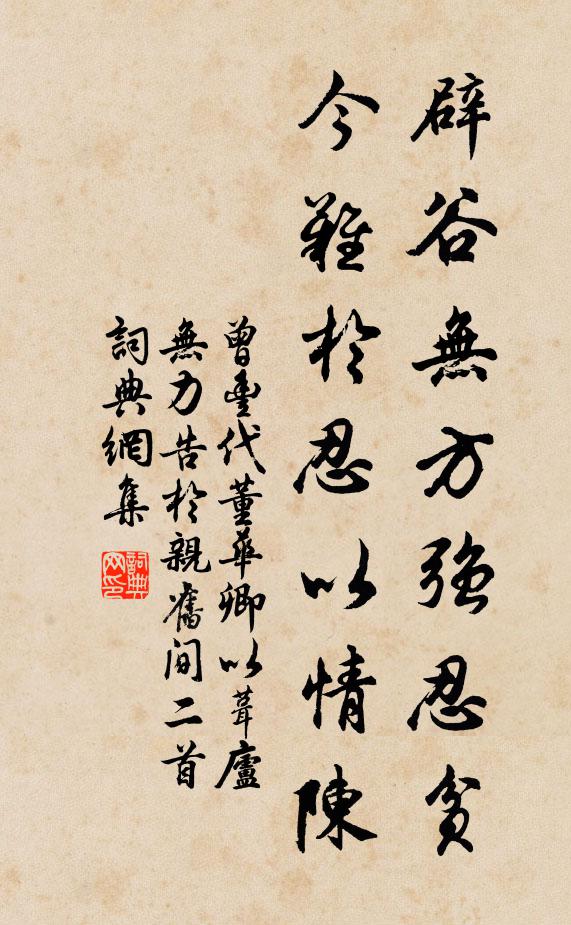 辟谷無方強忍貧
今難於忍以情陳
曾豐代董華卿以葺廬
無力告於親舊間二首
詞典網集
詞典网印